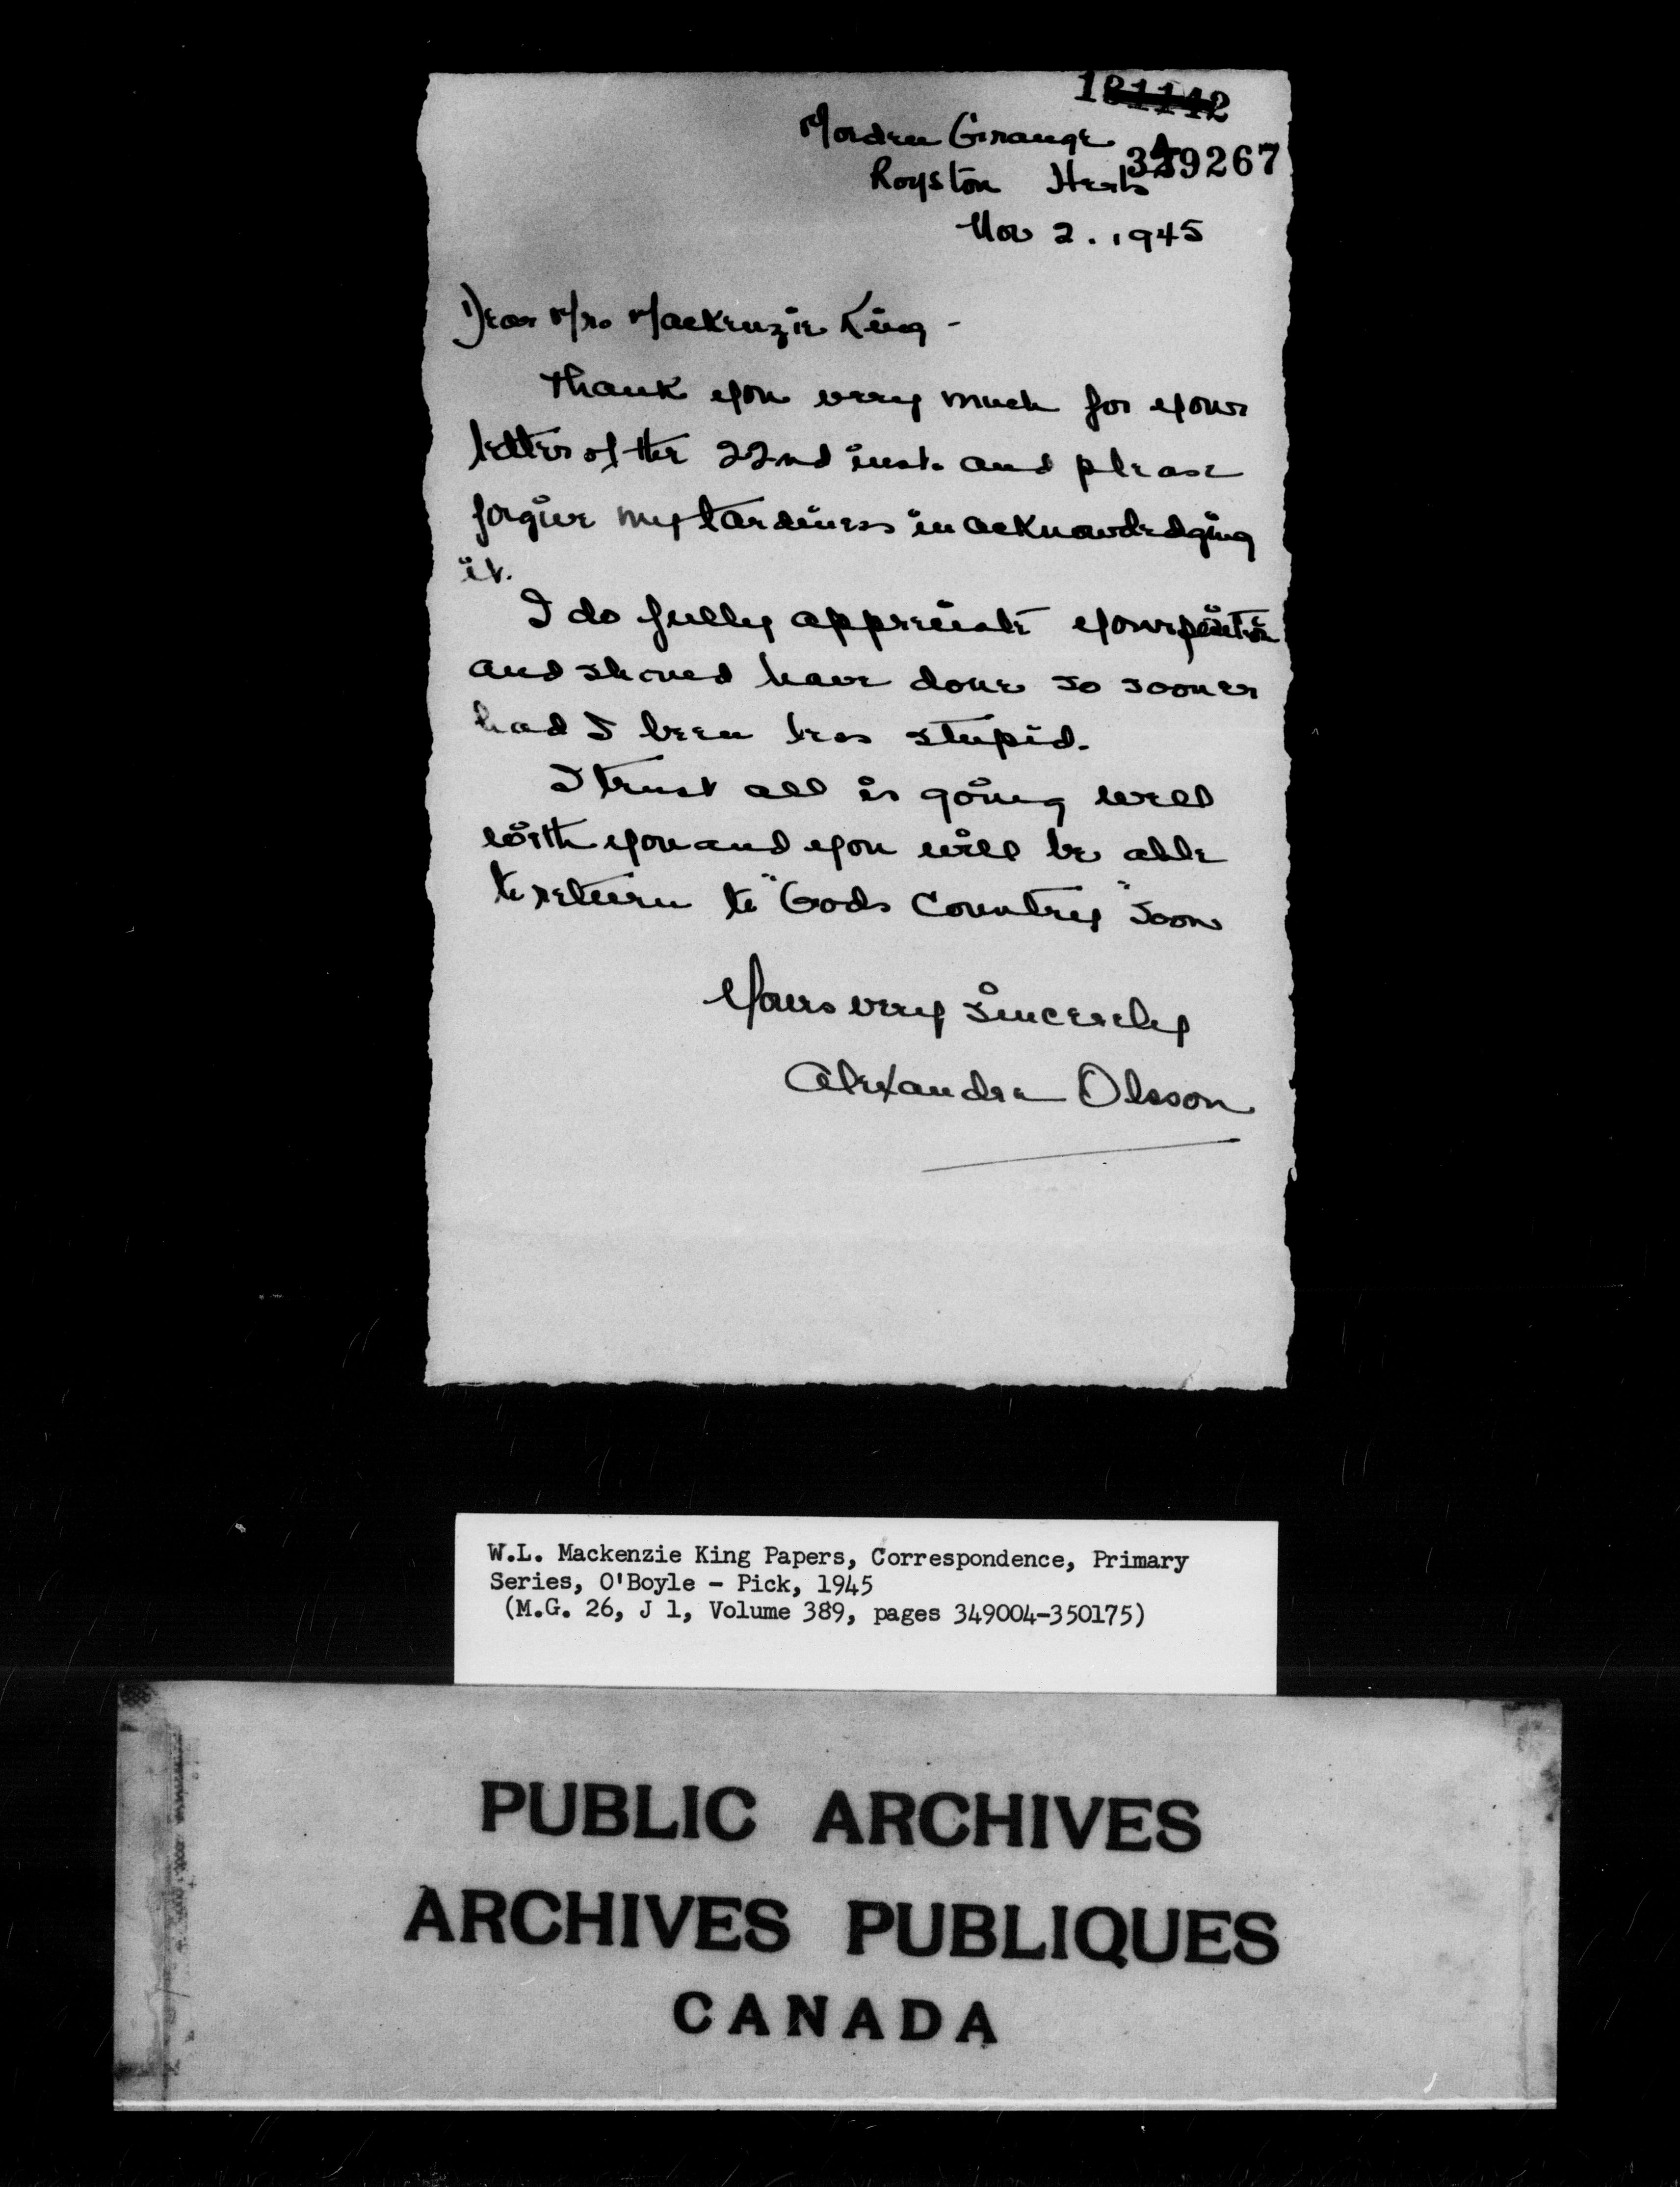 181142
Morden Grange
349267
Royston Herts
Nov 2. 1945
Dear Mr. MacKenzie King -
Thank you very much for your
letter of the 22nd inst. and please
forgive my tardiness in acknowledging
it.
I do fully appreciate your position
and should have done so sooner
had I been less stupid.
I trust all is going well
with you and you will be able
to return to "Gods Country" soon
Yours very sincerely
Alexandra Olsson
W.L. Mackenzie King Papers, Correspondence, Primary
Series, O'Boyle - Pick, 1945
(M.G. 26, J 1, Volume 389, pages 349004-350175)
PUBLIC ARCHIVES
ARCHIVES PUBLIQUES
CANADA